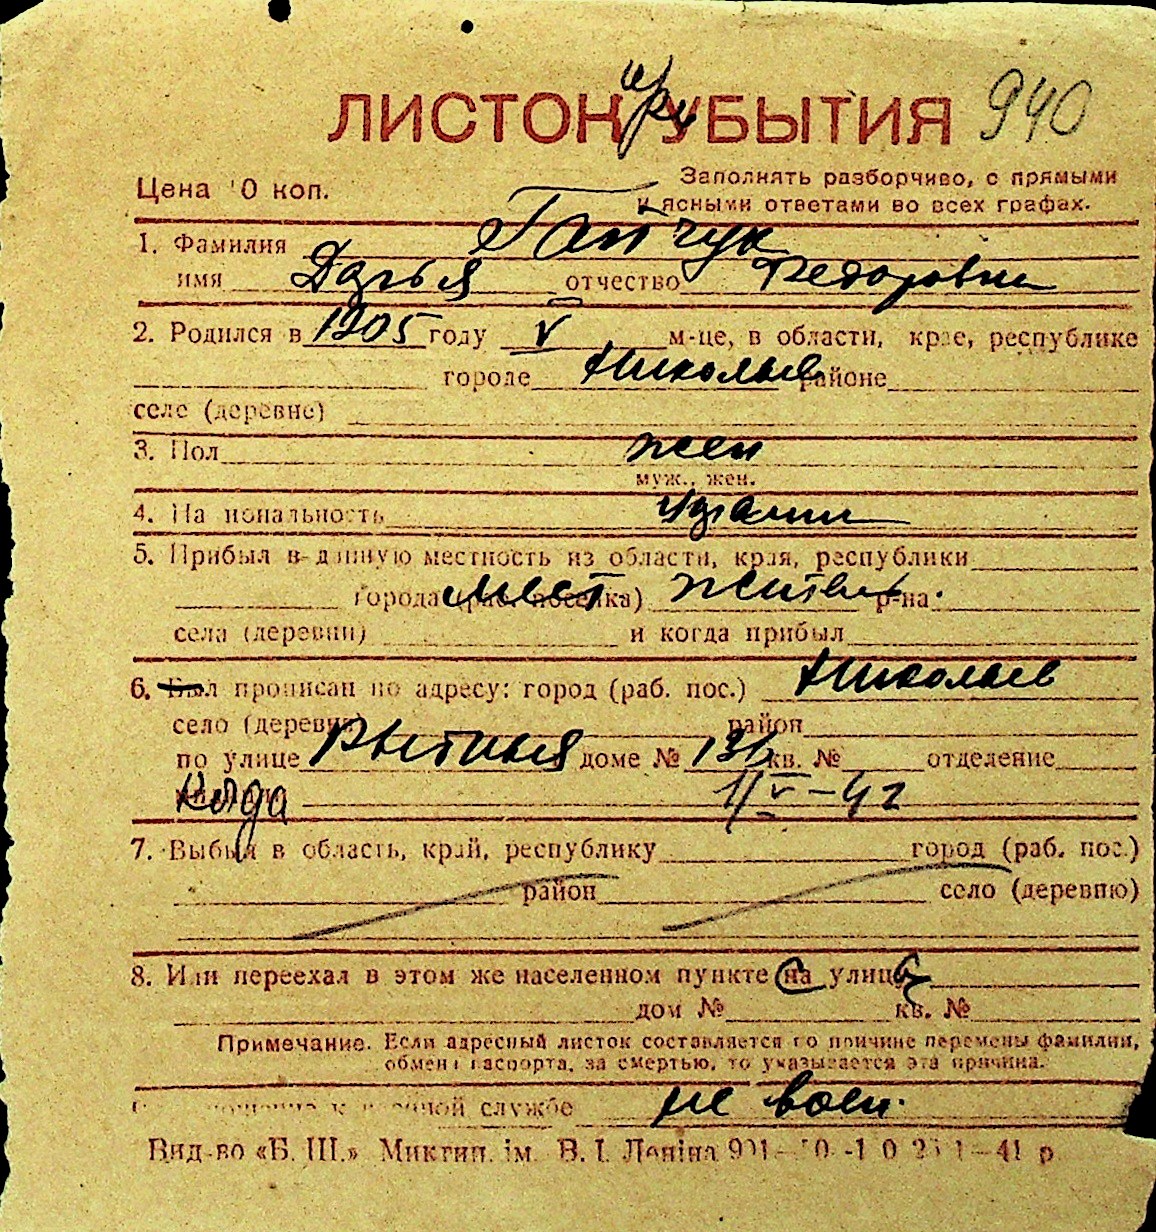 ЛИСТОК при УБЫТИЯ 940
Цена 0 коп.
Заполнять разборчиво, с прямыми
и ясными ответами во всех графах.
1. Фамилия Гайчук
имя Дарья отчество Федоровна
2. Родился в 1905 году V м-це, в области, крае, республике
городе Николаев районе
селе (деревне)
3. Пол жен
муж., жен.
4. Национальность
5. Прибыл в данную местность из области, края, республики
города (раб. поселка) мест жител р-на
села (деревни) и когда прибыл
6. Был прописан по адресу: город (раб. пос.) Николаев
село (деревня) район
по улице Рыбная доме № 131 кв. № отделение
когда 1/V-42
7. Выбыл в область, край, республику город (раб. пос.)
район село (деревню)
8. Или переехал в этом же населенном пункте с на улицы
дом № кв. №
Примечание. Если адресный листок составляется по причине перемены фамилии,
обмена паспорта, за смертью, то указывается эта причина.
службе не воен.
Вид-во «Б. Ш.» Миктип. ім. В. І. Леніна 41 р